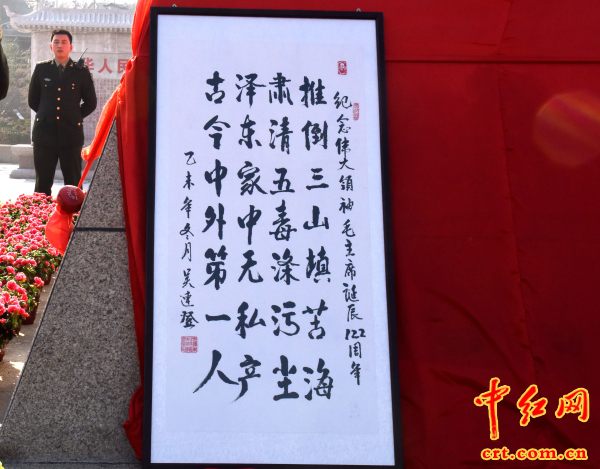 纪念伟大领袖毛主席诞辰122周年
推倒三山填苦海
肃清五毒涤污尘
泽东家中无私产
古今中外第一人
乙未年冬月 吴连登
华人民
中红网
crt.com.cn